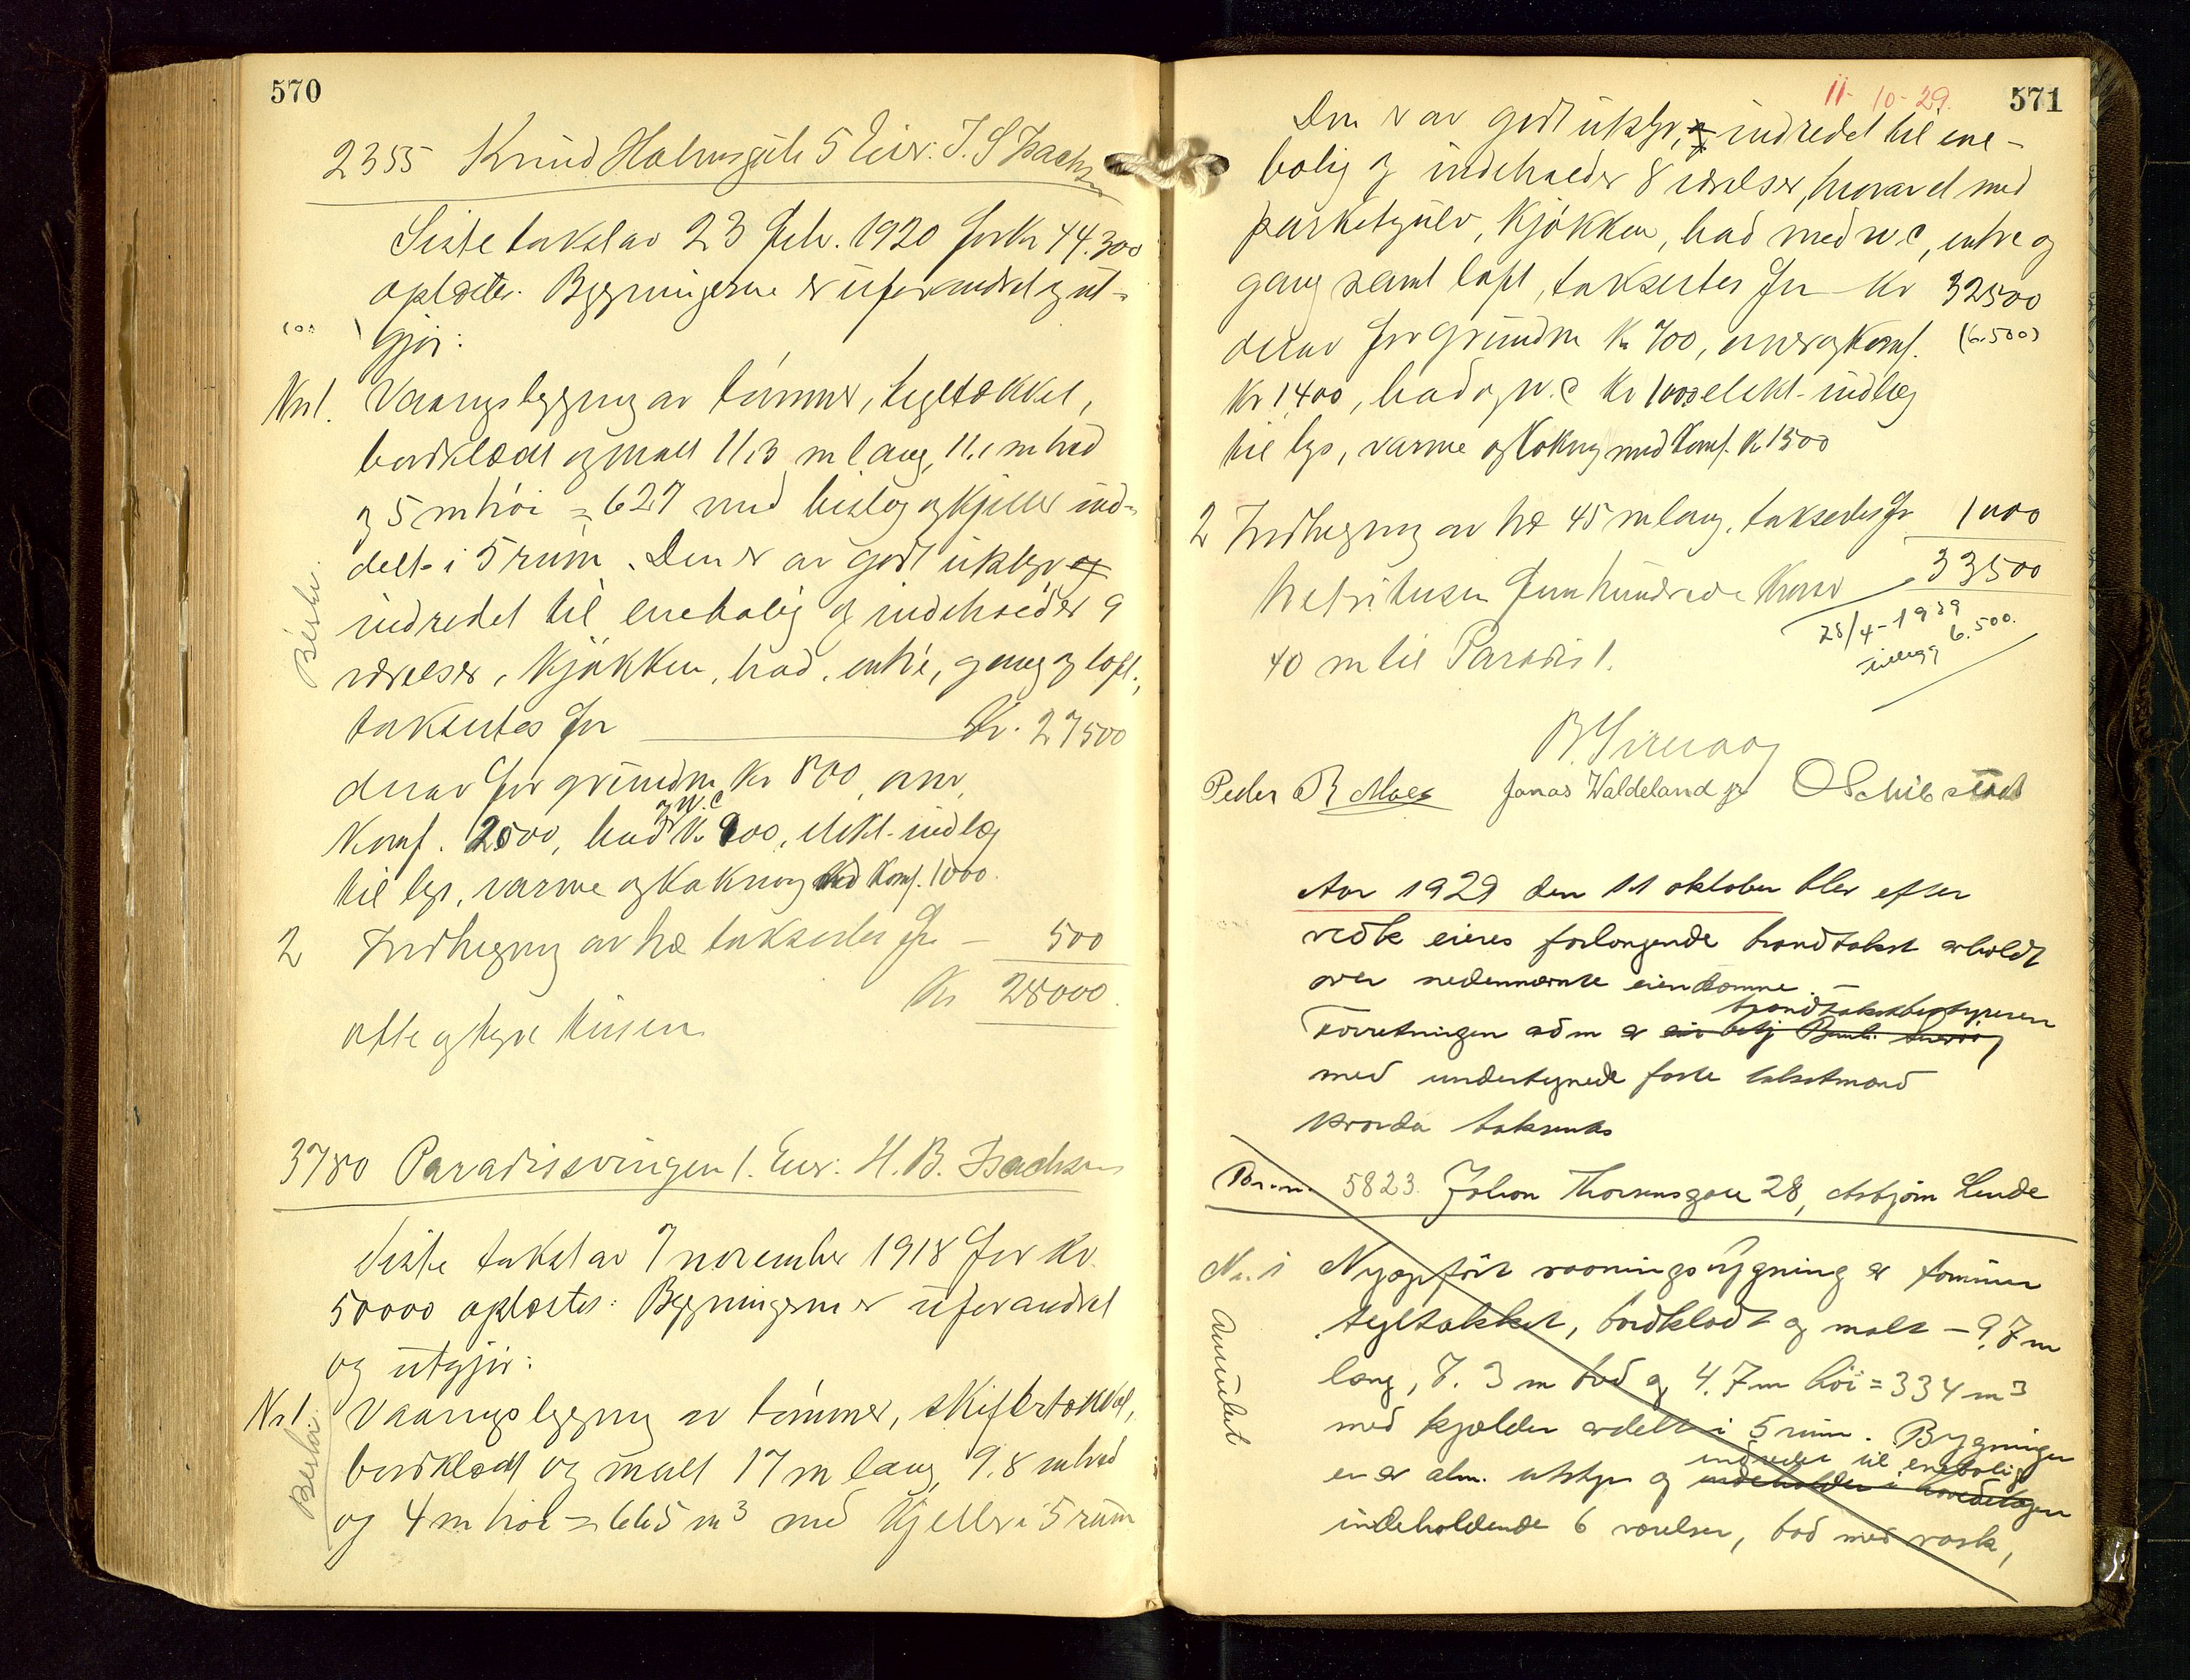 570
2355 Knud Holmsgate 5 Eier: I. S. Isachsen
Siste takst av 23 febr. 1920 for kr 44.300
oplæstes. Bygningerne er uforandret og ut-
gjør:
Nr 1. Vaaningsbygning av tømmer, tegltækket,
bordklædt og malt 11,3 m lang, 11,1 m bred
og 5 m høi = 627 med bislag og kjeller ind-
delt i 5 rum. Den er av godt utstyr og
indredet til enebolig og indeholder 9
værelser, kjøkken, bad, entré, gang og loft,
takseres for Kr. 27500
derav for grundm kr 800, ovner,
og w.c
komf. 2500, bad kr 900, elekt. indlæg
til lys, varme og kokning med komf. 1000.
2 Indhegning av træ takseres for – 500
Kr 28000
otte og tyve tusen
Beskr.
3780 Paradissvingen 1. Eier: H. B. Isachsen
Siste takst av 7 november 1918 for kr.
50000 oplæstes: Bygningerne er uforandret
og utgjør:
Nr 1. Vaaningsbygning av tømmer, skifertækket,
bordklædt og malt 17 m lang, 9,8 m bred
og 4 m høi = 665 m³ med kjeller i 5 rum
Beskr.
11-10-29.
571
Den er av godt utstyr, og indredet til ene-
bolig og indeholder 8 værelser, hvorav et med
parketgulv, kjøkken, bad med w.c, entre og
gang samt loft, takseres for kr 32500
derav for grundm kr 700, ovner og komf. (6.500)
kr 1400, bad og w.c kr 1000 elekt. indlæg
til lys, varme og kokning med komf. kr 1500
2 Indhegning av træ 45 m lang, takseres for 1000
33500
tretti tusen fem hundrede kroner
28/4-1939
tillegg 6.500.
40 m til Paradis 1.
Peder R Moes Jonas Waldeland jr O Schibstad
Aar 1929 den 11 oktober blev efter
vedk eieres forlangende brandtakst avholdt
over nedennævnte eiendomme.
brandtakstbestyreren
Forretningen som er
med undertegnede faste takstmænd
saaledes takseres
Br.nr. 5823. Johan Thorsensgate 28, Asbjørn Lende
Nr. 1 Nyopført vaaningsbygning av tømmer
tegltækket, bordklædt og malt – 9,7 m
lang, 7.3 m bred og 4.7 m høi = 334 m³
med kjælder avdelt i 5 rum. Bygningen
indredet til enebolig
er av alm. utstyr og indeholder i hovedetagen
indeholdende 6 værelser, bad med vask,
Annulert